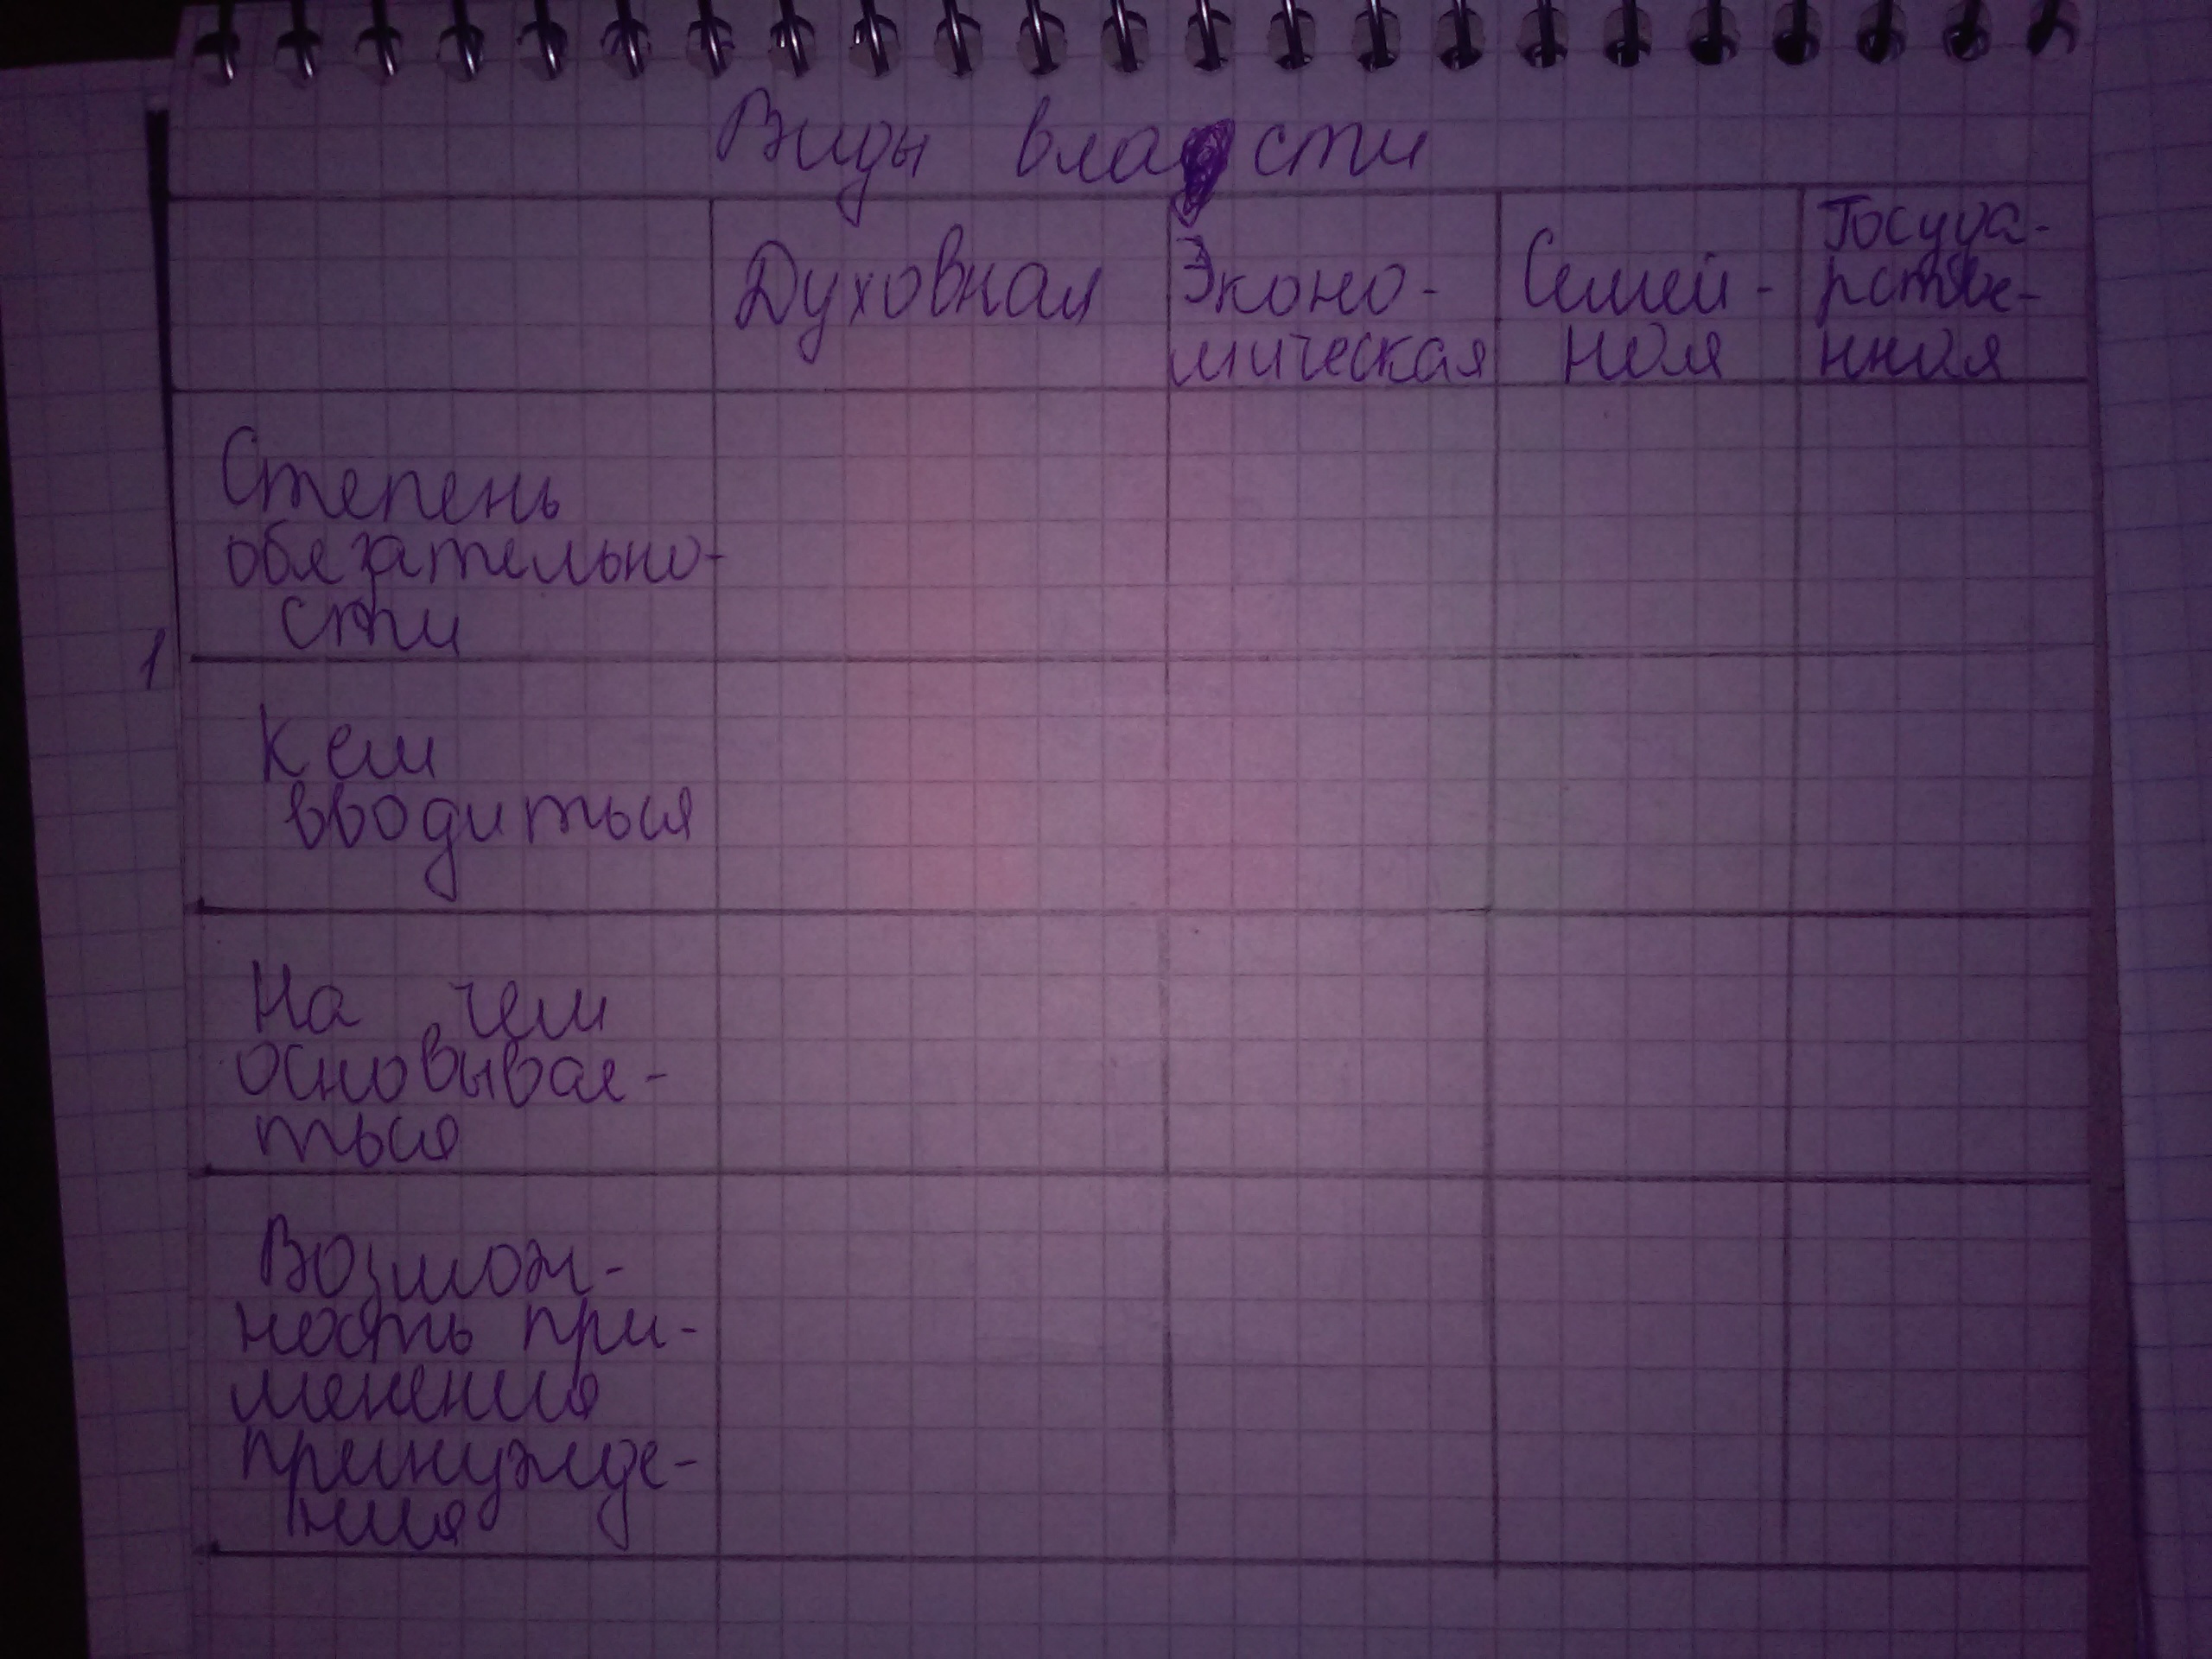 Виды власти
Духовная
Эконо-
мическая
Семей-
ная
Госуда-
рстве-
нная
Степень
обязательно-
сти
1
Кем
вводиться
На чем
основывае-
ться
Возмож-
ность при-
менения
принужде-
ния